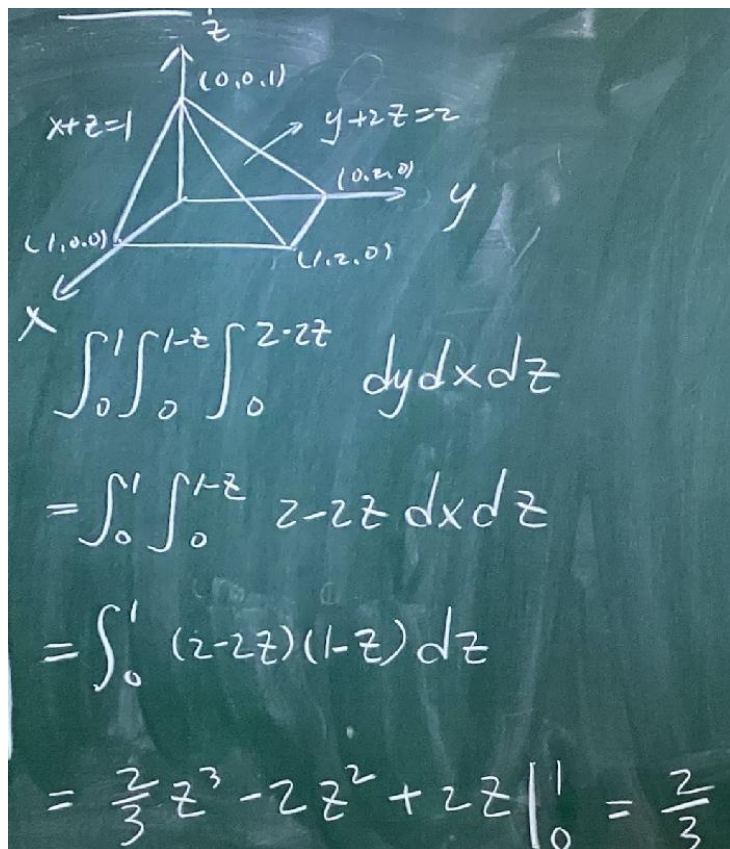 z
(0,0,1)
x+z=1
y+2z=2
(0,2,0)
y
(1,0,0)
(1,2,0)
x
∫₀¹∫₀^{1-z}∫₀^{2-2z} dydxdz
=∫₀¹∫₀^{1-z} 2-2z dxdz
=∫₀¹ (2-2z)(1-z)dz
= 2/3 z³ -2z² +2z |₀¹ = 2/3